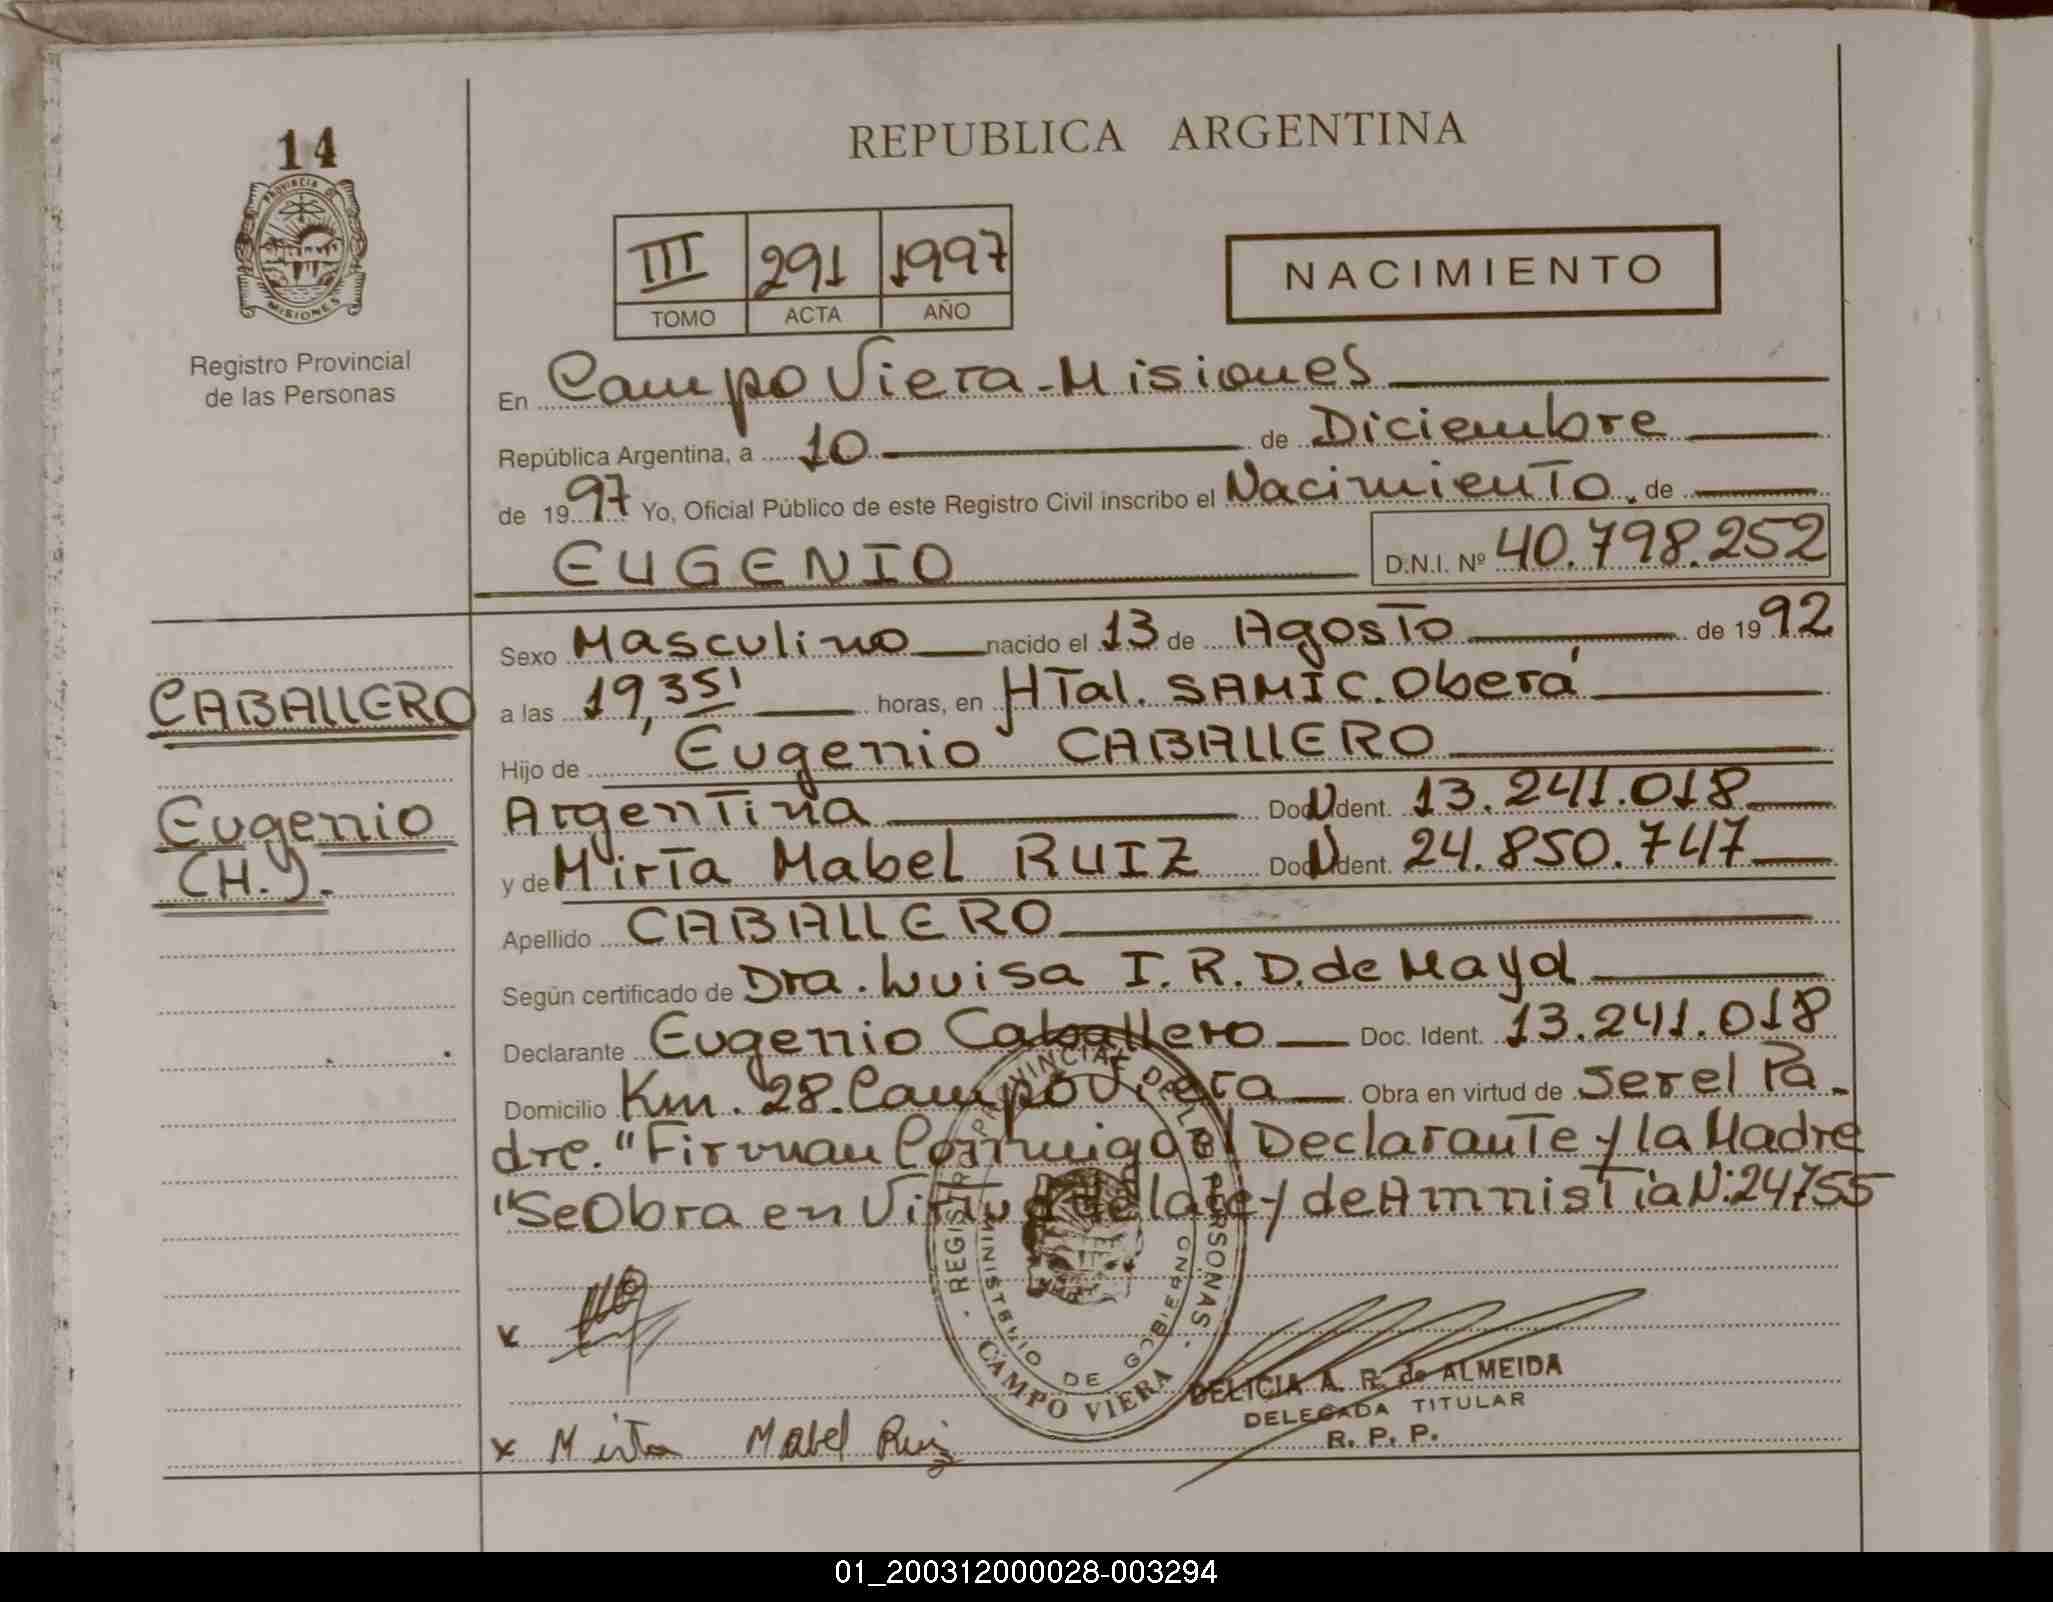 14
PROVINCIA DE
MISIONES
Registro Provincial
de las Personas
REPUBLICA ARGENTINA
III 291 1997
TOMO ACTA AÑO
NACIMIENTO
En Campo Viera - Misiones
República Argentina, a 10 de Diciembre
de 1997 Yo, Oficial Público de este Registro Civil inscribo el Nacimiento. de
EUGENIO D.N.I. Nº 40.798.252
Sexo Masculino nacido el 13 de Agosto de 1992
CABALLERO
a las 19,35' horas, en HTal. SAMIC. Oberá
Hijo de Eugenio CABALLERO
Eugenio
(H.).
Argentina Doc N Ident. 13.241.018
y de Mirta Mabel RUIZ Doc N Ident. 24.850.747
Apellido CABALLERO
Según certificado de Dra. Luisa I. R. D. de Mayol
Declarante Eugenio Caballero Doc. Ident. 13.241.018
Domicilio Km. 28. Campo Viera Obra en virtud de ser el Pa-
dre. "Firman Conmigo el Declarante y la Madre
"Se Obra en Virtud de la ley de Amnistia N: 24755
REGISTRO PROVINCIAL DE LAS PERSONAS
MINISTERIO DE GOBIERNO
CAMPO VIERA
x
DELICIA A. R. de ALMEIDA
DELEGADA TITULAR
R. P. P.
x Mirta Mabel Ruiz
01_200312000028-003294